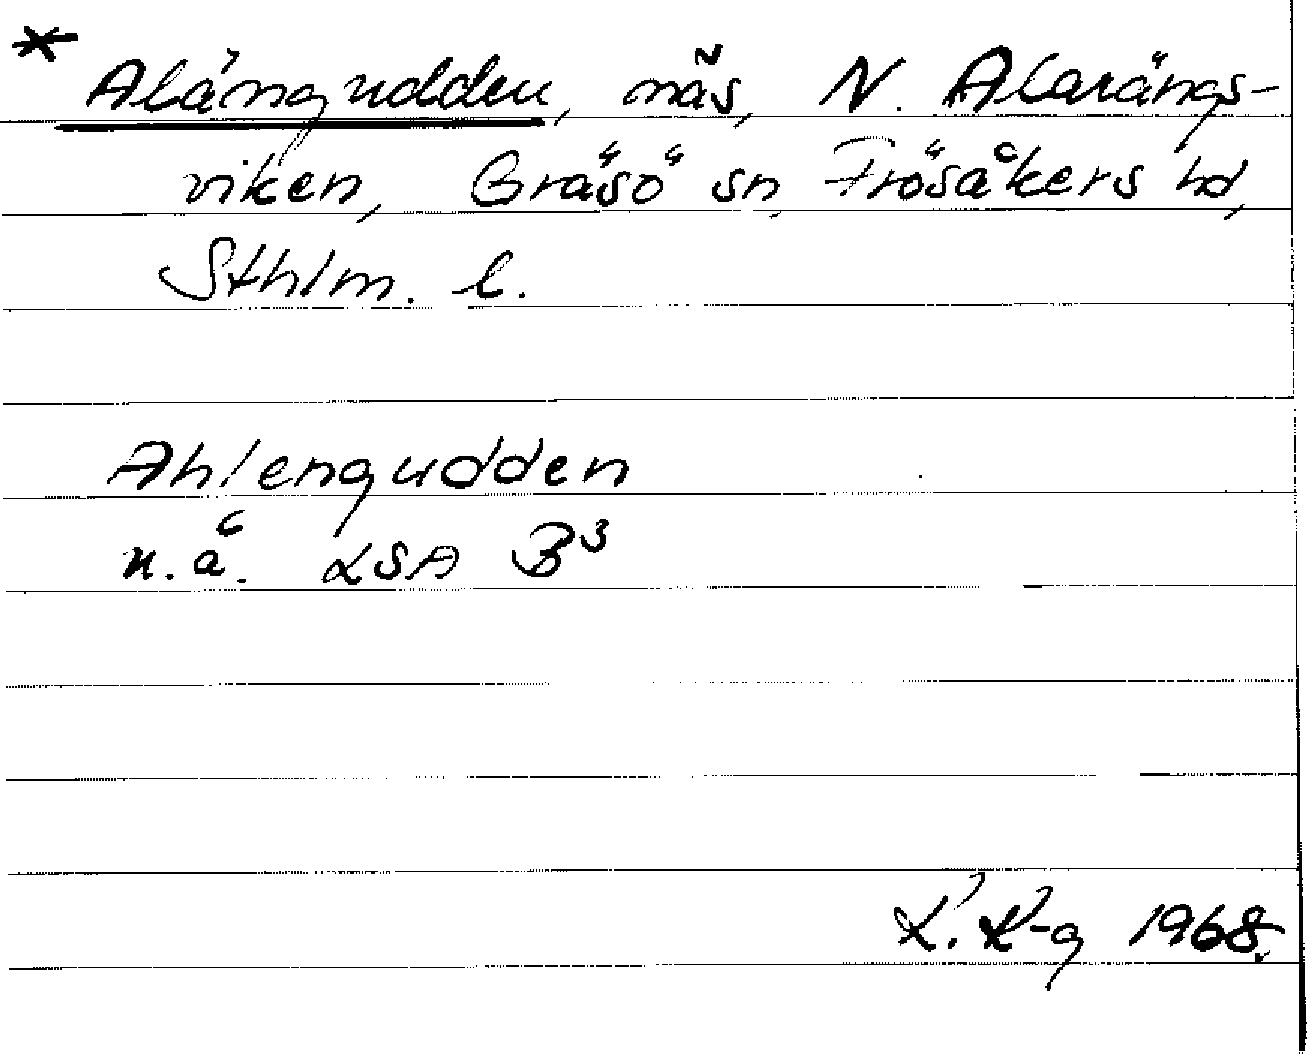 * Alängudden, näs, N. Alarängs-
viken, Gräsö sn, Frösåkers hd,
Sthlm. l.
Ahlengudden
n.å. LSA B3
K. K-g 1968.